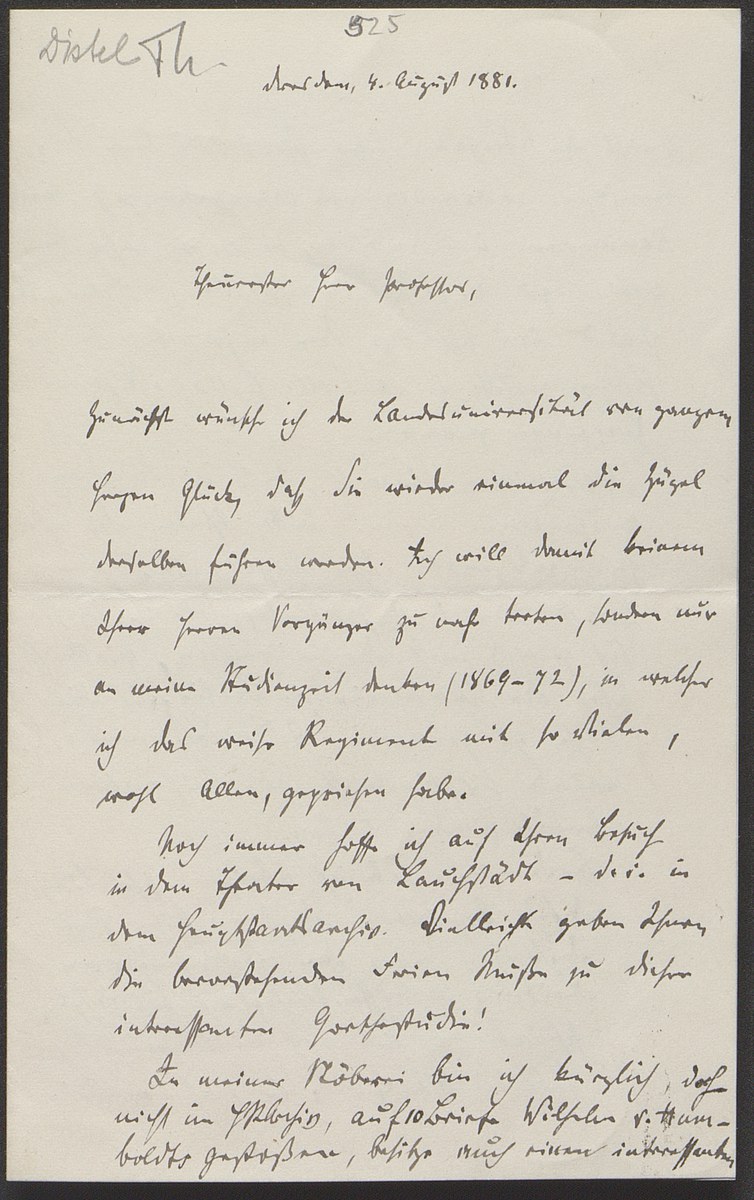 Distel Th.
525
Dresden, 4. August 1881.
Theuerster Herr Professor,
Zunächst wünsche ich der Landesuniversität von ganzem
Herzen Glück, daß Sie wieder einmal die Zügel
derselben führen werden. Ich will damit keinem
Ihrer Herren Vorgänger zu nahe treten, sondern nur
an meine Studienzeit denken (1869-72), in welcher
ich das weise Regiment mit so Vielen,
wohl Allen, gepriesen habe.
Noch immer hoffe ich auf Ihren Besuch
in dem Theater von Lauchstädt - d. i. in
dem Hauptstaatsarchiv. Vielleicht geben Ihnen
die bevorstehenden Ferien Muße zu dieser
interessanten Goethestudie!
In meiner Stöberei bin ich kürzlich, doch
nicht im HStArchiv, auf 10 Briefe Wilhelm v. Hum-
boldts gestoßen, besitze auch einen interessanten